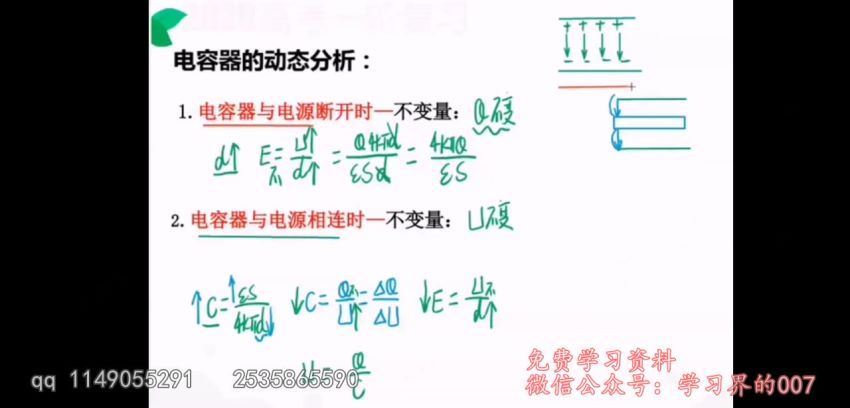 电容器的动态分析：
1. 电容器与电源断开时—不变量：Q不变
d↑ E不=U↑/d↑=Q4kπd/εSd=4kπQ/εS
2. 电容器与电源相连时—不变量：U不变
↑C=↑εS/4kπd↓ ↓C=Q不/U↑=ΔQ/ΔU ↓E=U不/d↑
U=Q/C
免费学习资料
qq 1149055291 2535865590 微信公众号：学习界的007